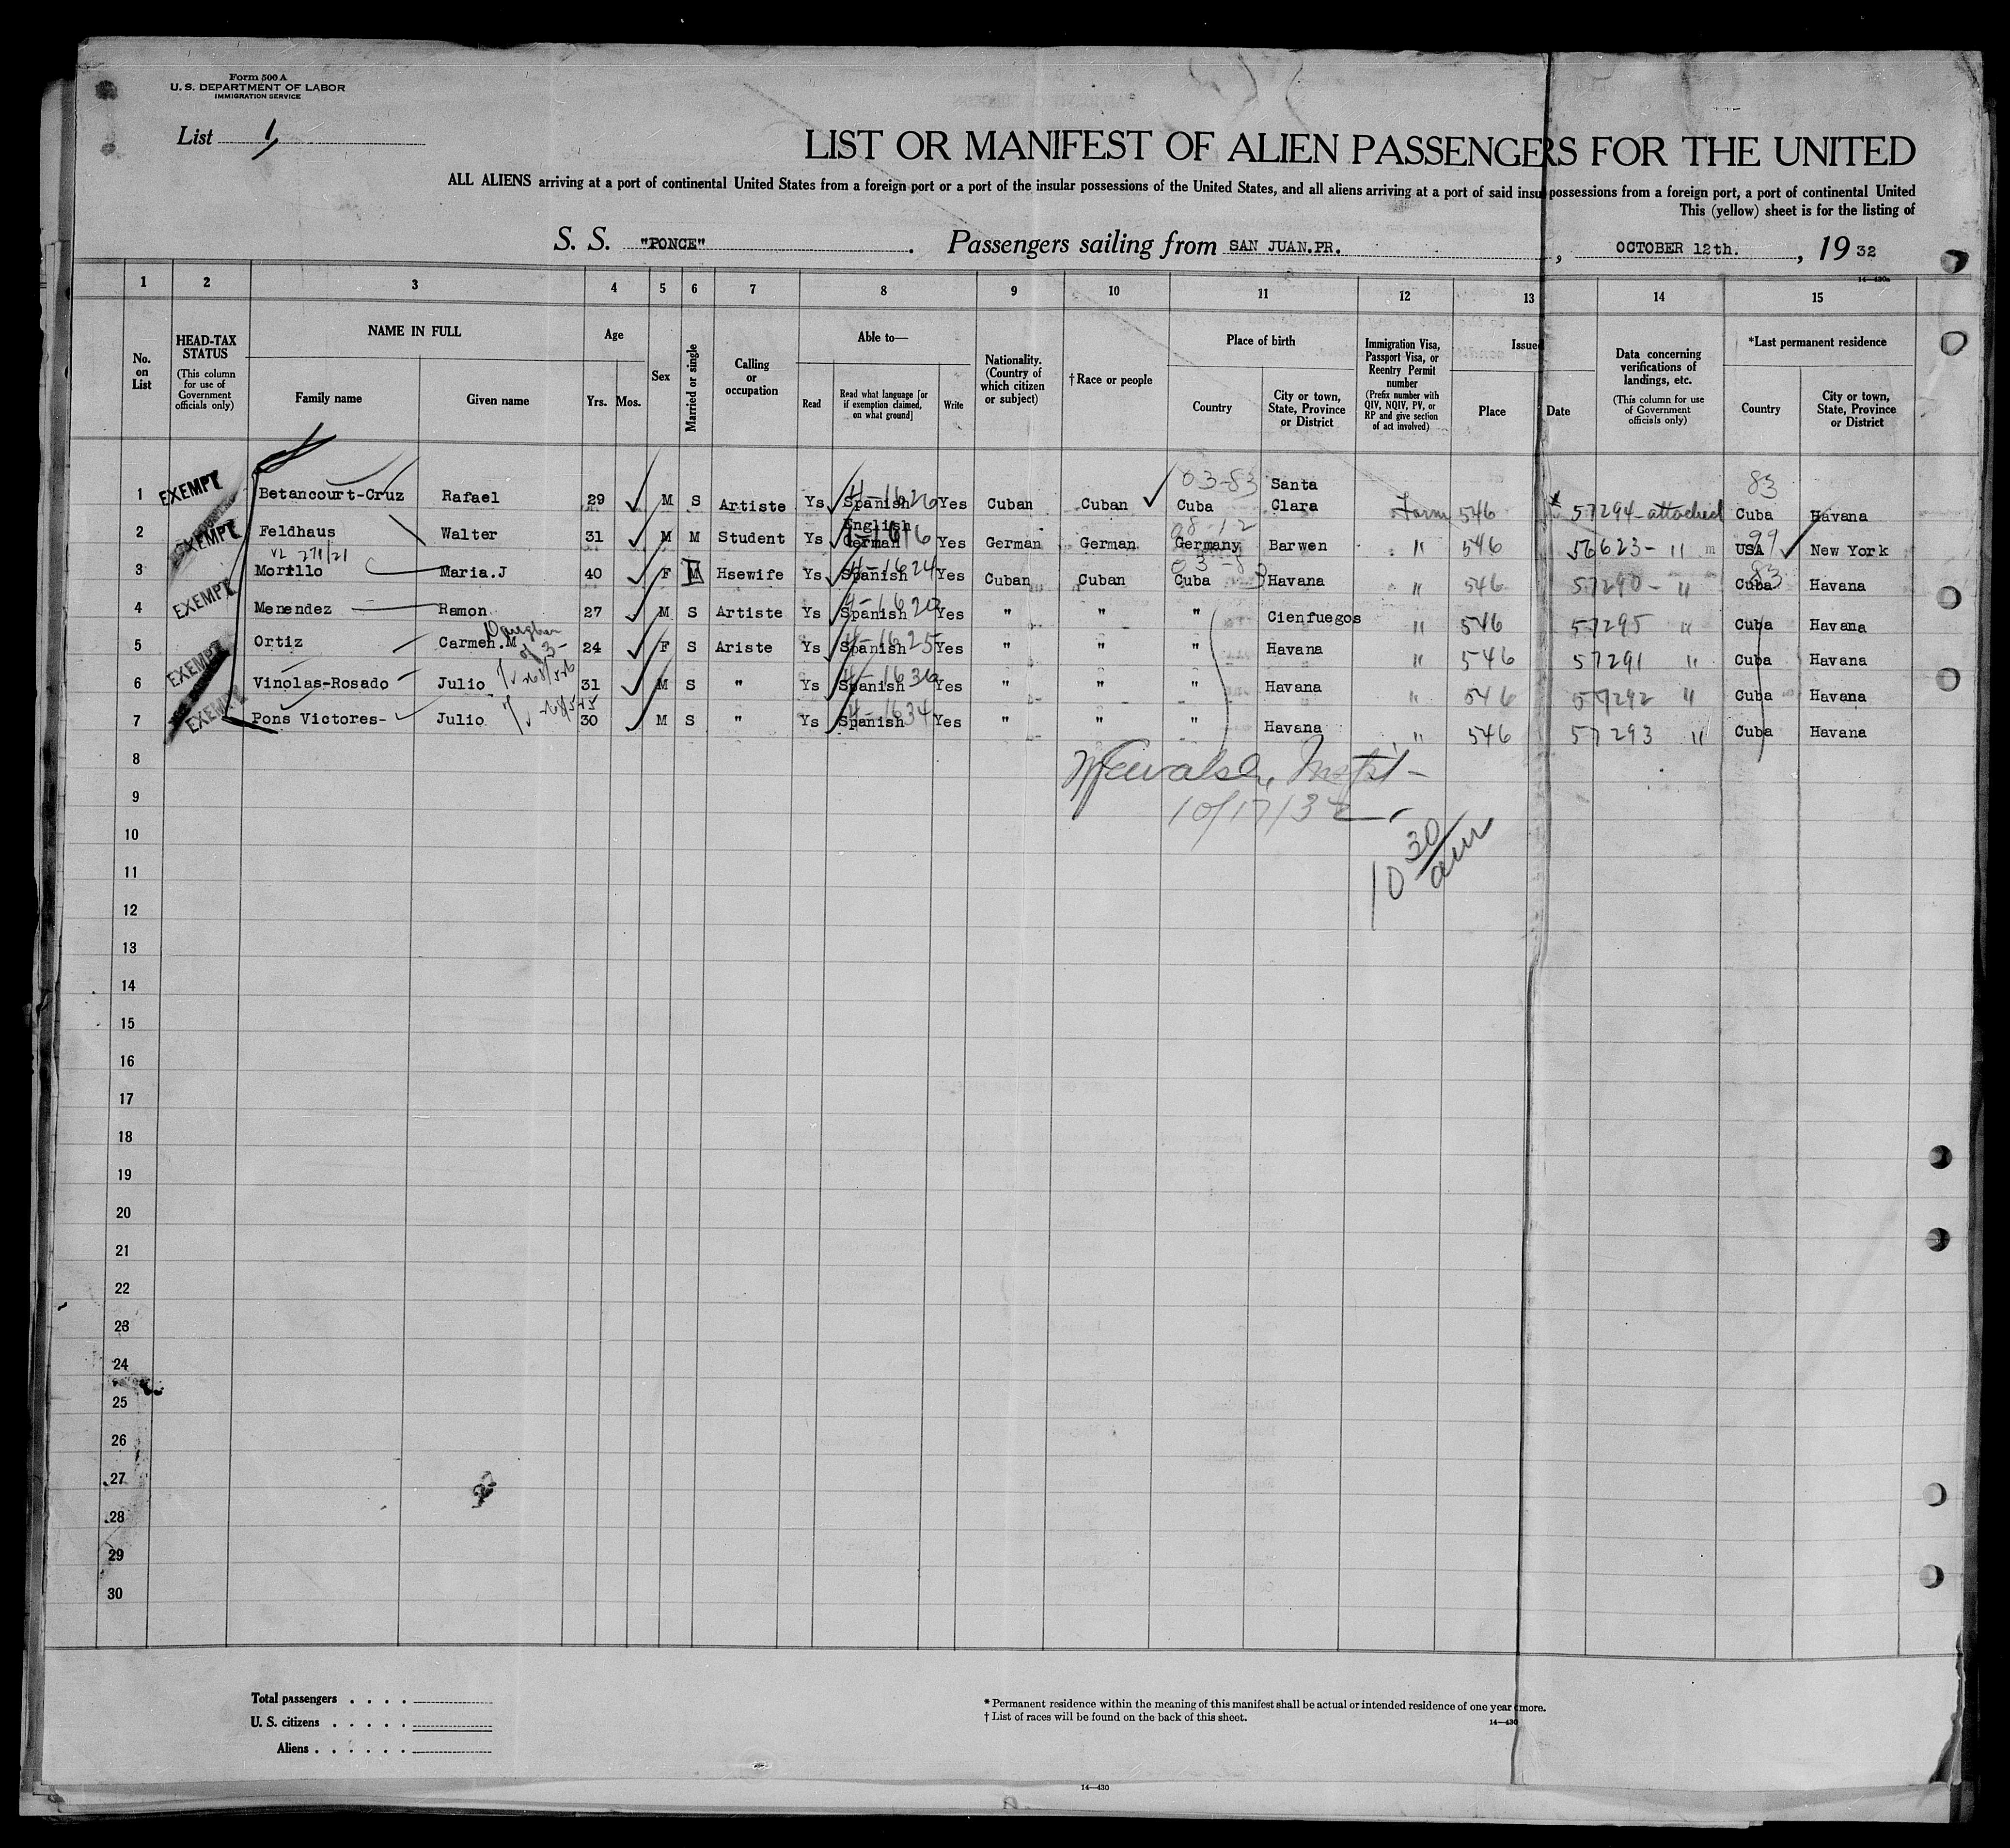 Form 500 A
U. S. DEPARTMENT OF LABOR
IMMIGRATION SERVICE
List 1
LIST OR MANIFEST OF ALIEN PASSENGERS FOR THE UNITED
ALL ALIENS arriving at a port of continental United States from a foreign port or a port of the insular possessions of the United States, and all aliens arriving at a port of said insu possessions from a foreign port, a port of continental United
This (yellow) sheet is for the listing of
S. S. "PONCE". Passengers sailing from SAN JUAN.PR., OCTOBER 12th., 19 32
14—430a
1 2 3 4 5 6 7 8 9 10 11 12 13 14 15
No. on List
HEAD-TAX STATUS
(This column for use of Government officials only)
NAME IN FULL
Family name
Given name
Age
Yrs. Mos.
Sex
Married or single
Calling or occupation
Able to—
Read
Read what language [or if exemption claimed, on what ground]
Write
Nationality. (Country of which citizen or subject)
†Race or people
Place of birth
Country
City or town, State, Province or District
Immigration Visa, Passport Visa, or Reentry Permit number
(Prefix number with QIV, NQIV, PV, or RP and give section of act involved)
Issued
Place
Date
Data concerning verifications of landings, etc.
(This column for use of Government officials only)
*Last permanent residence
Country
City or town, State, Province or District
03-83 83
1 EXEMPT Betancourt-Cruz Rafael 29 M S Artiste Ys Spanish Yes Cuban Cuban Cuba Santa Clara Form 546 57294-attached Cuba Havana
08-12 99
2 EXEMPT Feldhaus Walter 31 M M Student Ys English German Yes German German Germany Barwen " 546 56623- " USA New York
VL 271/21 03-83 83
3 Morillo Maria.J 40 F M Hsewife Ys Spanish Yes Cuban Cuban Cuba Havana " 546 57290- " Cuba Havana
4 EXEMPT Menendez Ramon 27 M S Artiste Ys Spanish Yes " " " Cienfuegos " 546 57295 " Cuba Havana
Daughter of 3-
5 Ortiz Carmen.M 24 F S Ariste Ys Spanish Yes " " " Havana " 546 57291 " Cuba Havana
6 EXEMPT Vinolas-Rosado Julio 31 M S " Ys Spanish Yes " " " Havana " 546 57292 " Cuba Havana
7 EXEMPT Pons Victores- Julio 30 M S " Ys Spanish Yes " " " Havana " 546 57293 " Cuba Havana
8
10/17/32
9
10 30 am
10
11
12
13
14
15
16
17
18
19
20
21
22
23
24
25
26
27
28
29
30
Total passengers . . . .
U. S. citizens . . . . .
Aliens . . . . . .
* Permanent residence within the meaning of this manifest shall be actual or intended residence of one year more.
† List of races will be found on the back of this sheet.
14—430
14—430